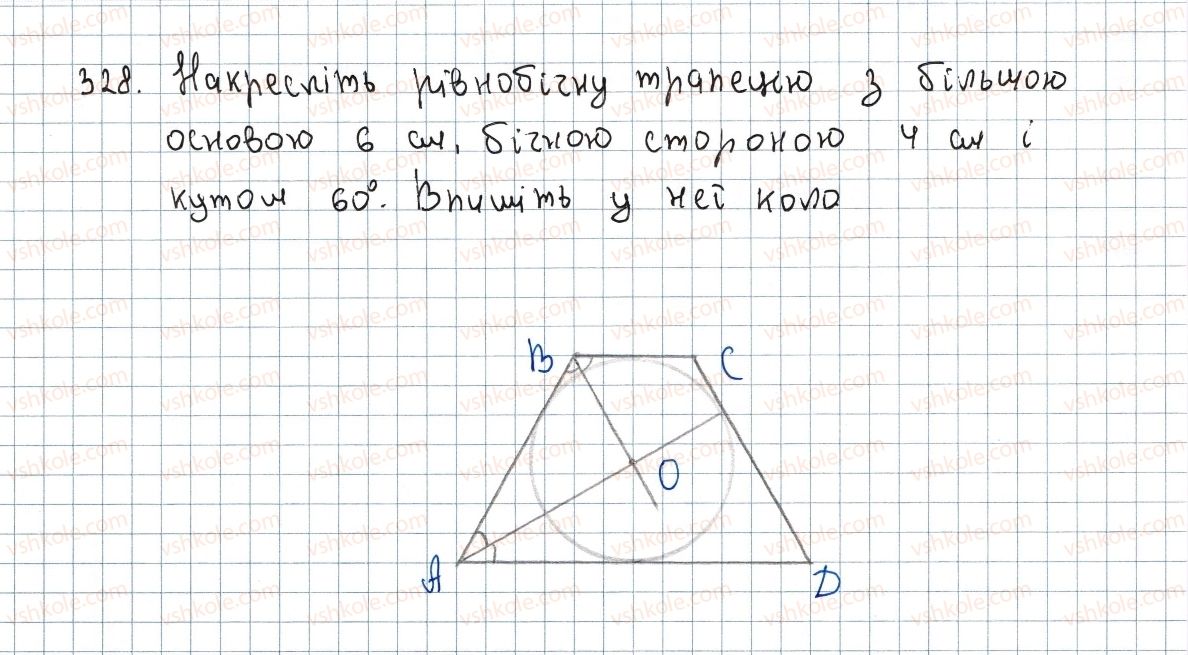 328. Накресліть рівнобічну трапецію з більшою
основою 6 см, бічною стороною 4 см і
кутом 60°. Впишіть у неї коло
B C
O
A D
vshkole.com